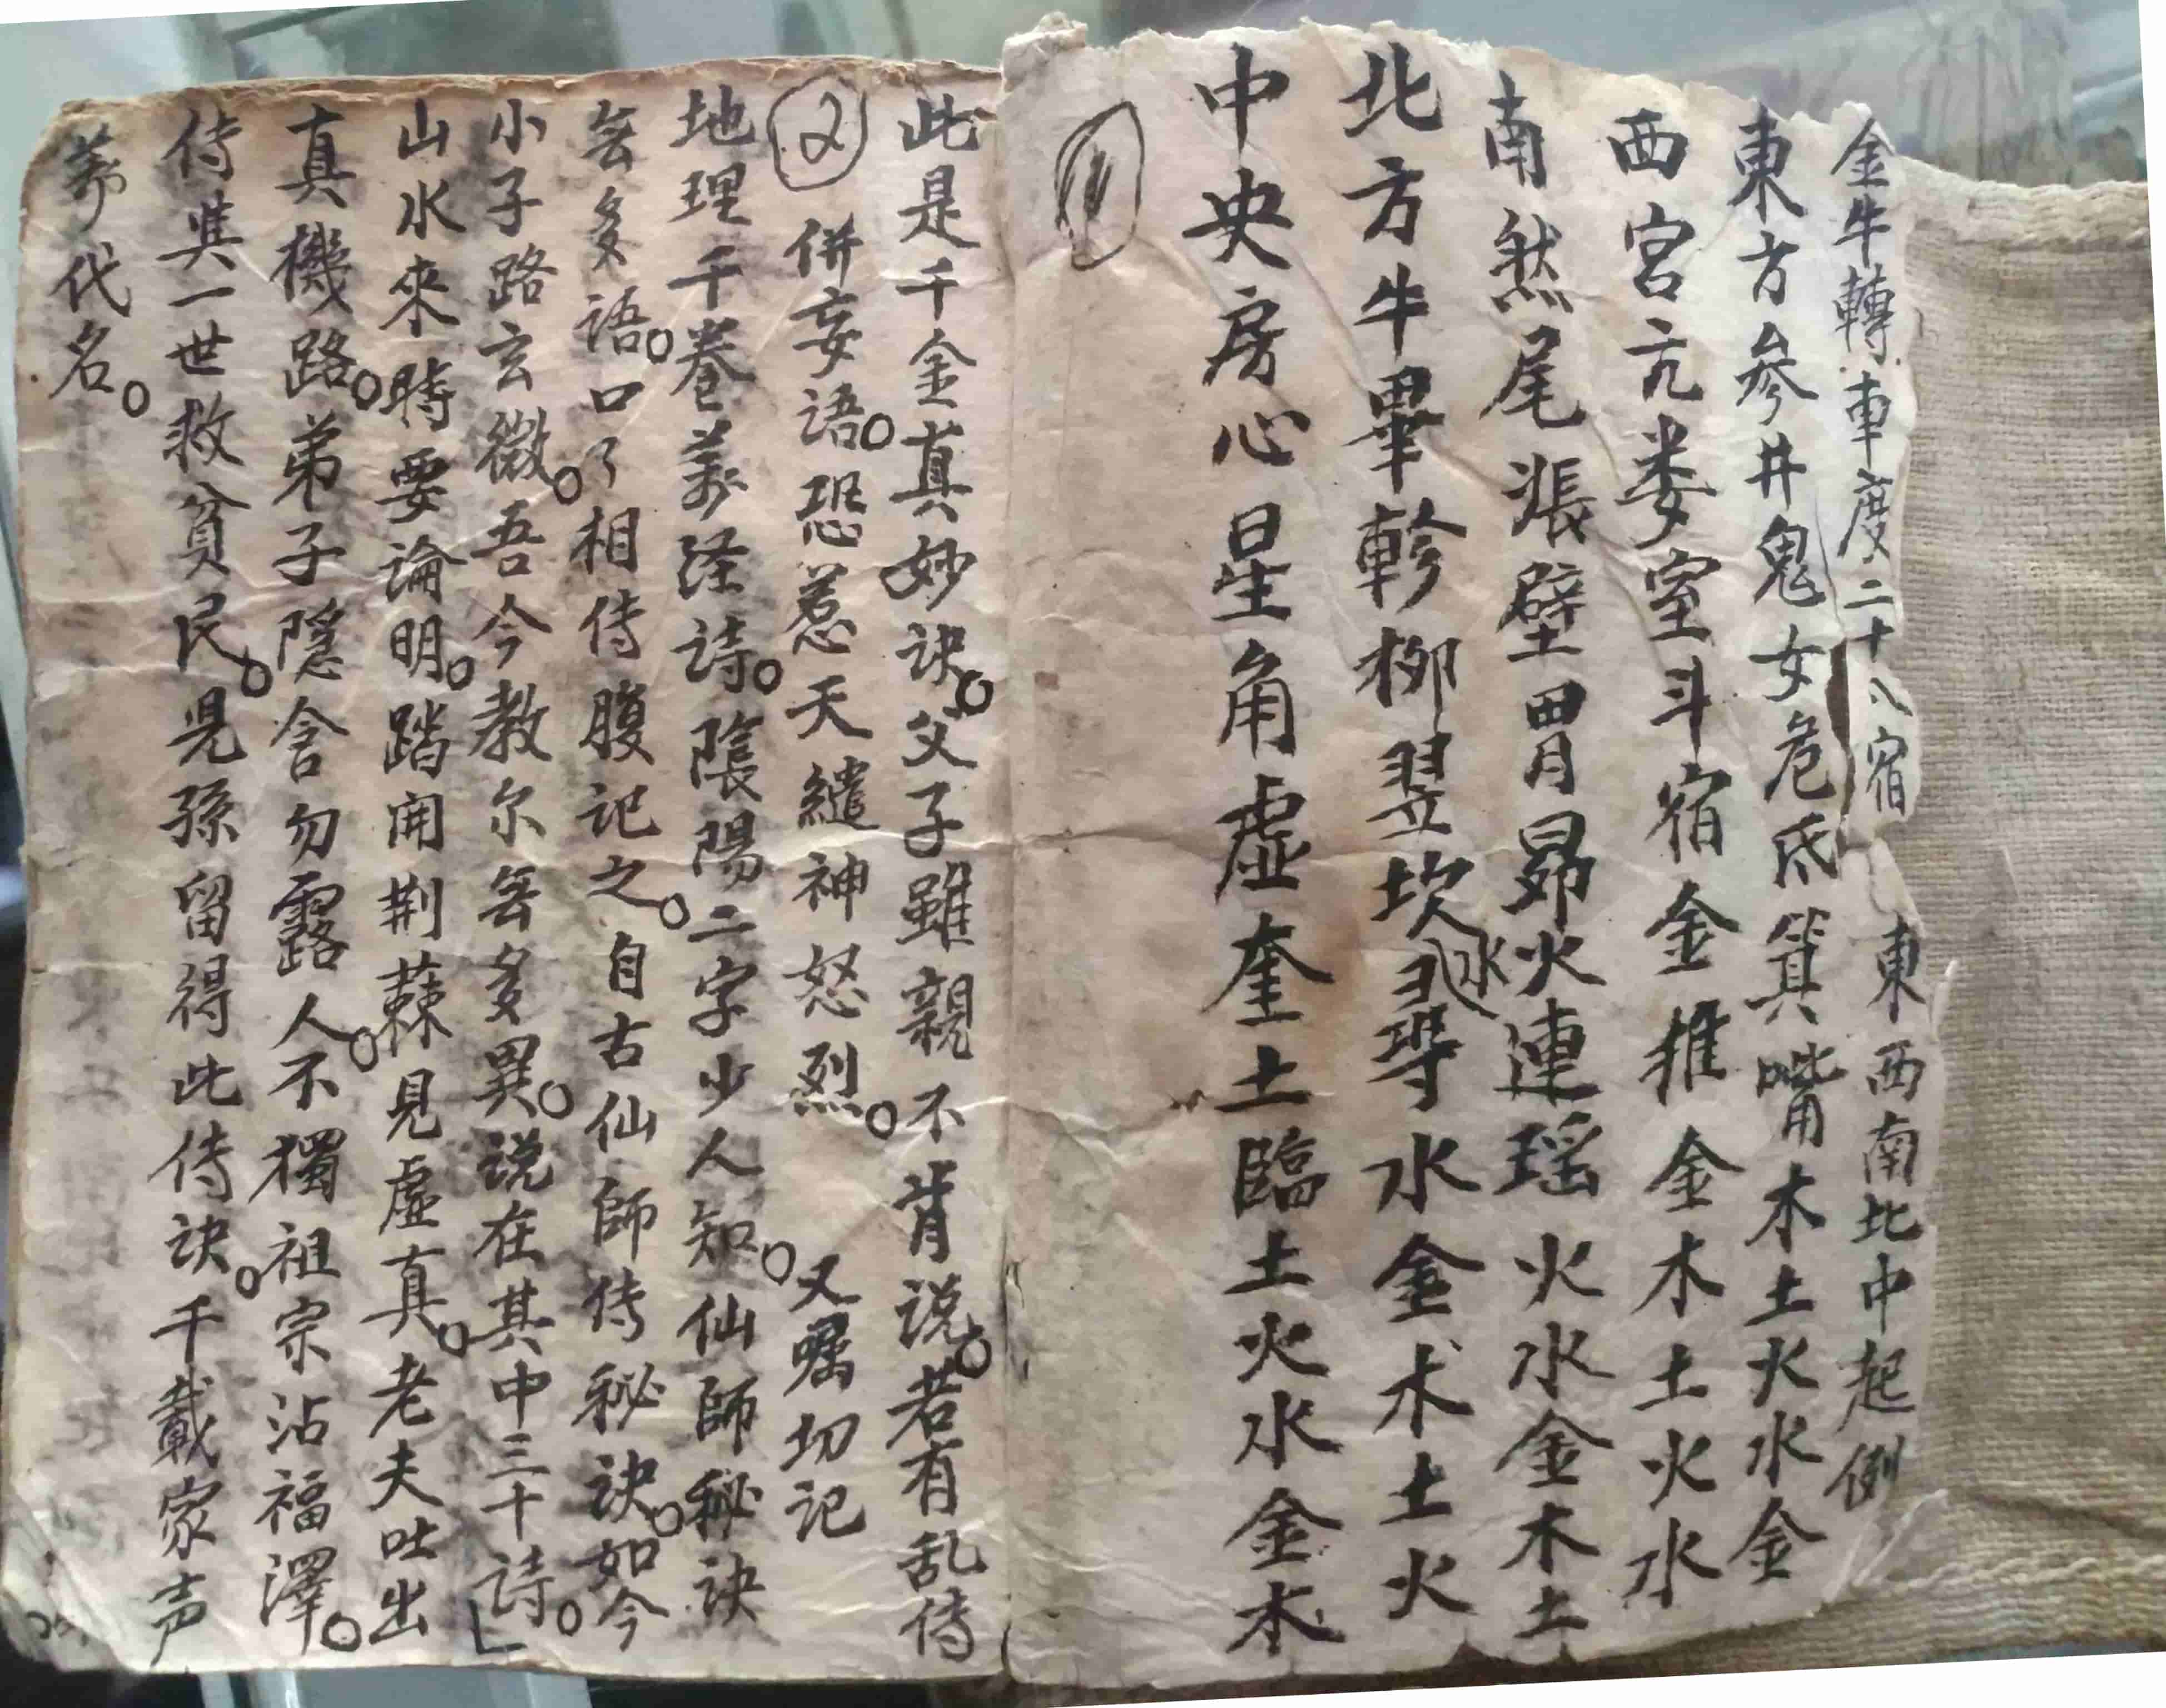 金牛轉車度二十八宿 東西南北中起例
東方參井鬼女危氐箕嘴木土火水金
西宮亢娄室斗宿金推金木土火水
南然尾張壁胃昴火連瑶火水金木土
北方牛畢軫柳翌坎尋水金木土火
水
中央房心星角虚奎土臨土火水金木
1
此是千金真妙诀。父子雖親不肯说。若有乱侍
2 併妄語。恐惹天繾神怒烈。 又嘱切记
地理千卷萬泾诗。陰陽二字少人知。仙師秘诀
無多語。口了相侍腹记之。自古仙師侍秘诀。如今
小子路玄微。吾今教尔無多異。说在其中三十诗。
山水來時要論明。踏闹荆蕀見虚真。老夫吐出
真機路。弟子隱含勿露人。不獨祖宗沾福澤。
侍其一世救貧民。児孫留得此侍诀。千載家声
萬代名。